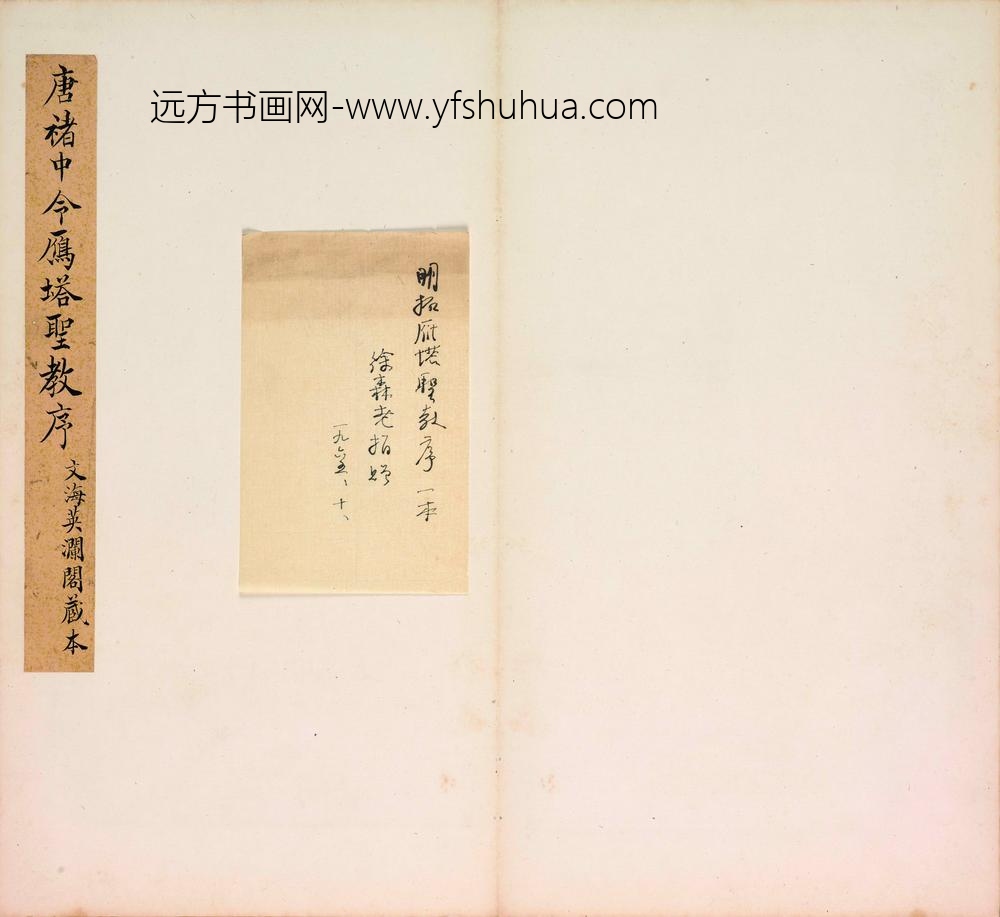 远方书画网-www.yfshuhua.com
明拓雁塔聖教序一本
徐森老拍贈
一九六五、十、
唐褚中令鴈塔聖教序
文海英瀾閣藏本